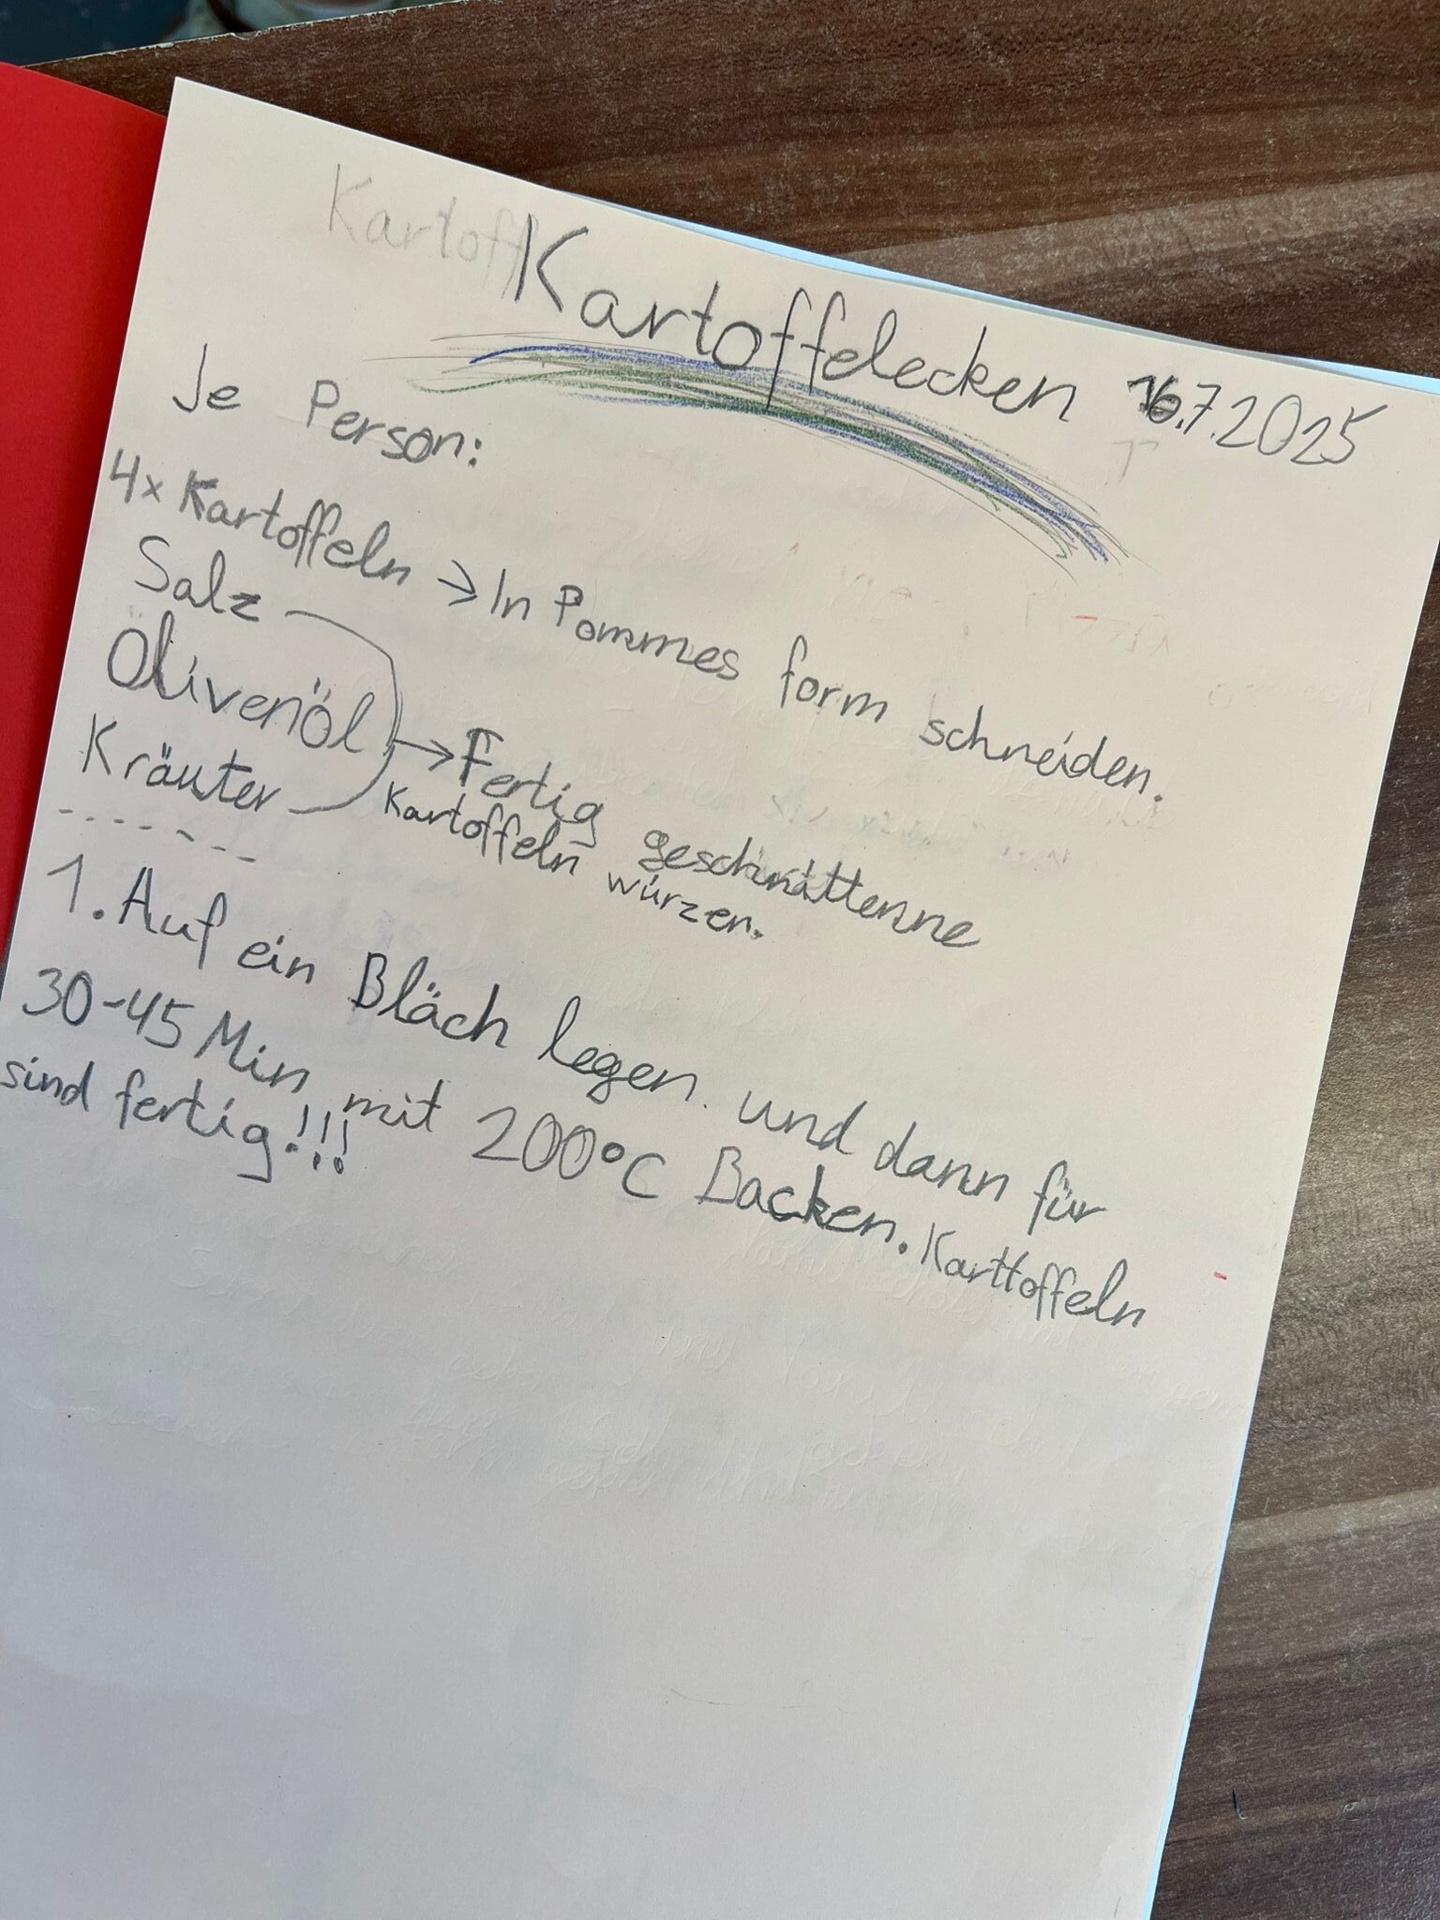 Kartoff
Kartoffelecken 16.7.2025
Je Person:
4x Kartoffeln → In Pommes form schneiden.
Salz
Ölivenöl → Fertig geschnittenne
Kräuter Kartoffeln würzen.
1. Auf ein Bläch legen und dann für
30-45 Min mit 200°C Backen. Karttoffeln
sind fertig!!!